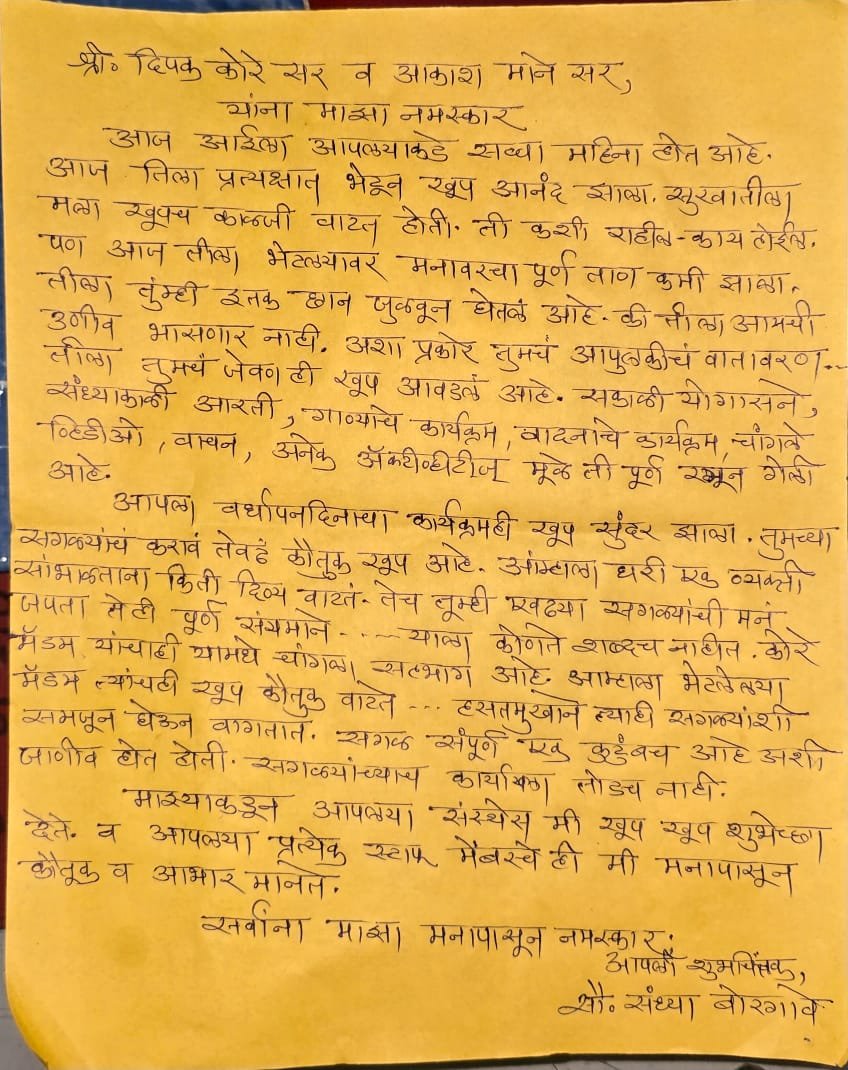 श्री. दिपक कोरे सर व आकाश माने सर,
यांना माझा नमस्कार
आज आईला आपल्याकडे सव्वा महिना होत आहे.
आज तिला प्रत्यक्षात भेटून खूप आनंद झाला. सुरवातीला
मला खूपच काळजी वाटत होती. ती कशी राहील-काय होईल.
पण आज तीला भेटल्यावर मनावरचा पूर्ण ताण कमी झाला.
तीला तुंम्ही इतकं छान जुळवून घेतलं आहे. की तीला आमची
उणीव भासणार नाही. अशा प्रकारे तुमचं आपुलकीचं वातावरण...
तीला तुमचं जेवण ही खूप आवडलं आहे. सकाळी योगासने,
संध्याकाळी आरती, गाण्याचे कार्यक्रम, वादनाचे कार्यक्रम, चांगले
व्हिडीओ, वाचन, अनेक ॲक्टीव्हीटीज् मूळे ती पूर्ण रमून गेली
आहे.
आपला वर्धापनदिनाचा कार्यक्रमही खूप सुंदर झाला. तुमच्या
सगळ्यांचं करावं तेवढं कौतुक खूप आहे. आंम्हाला घरी एक व्यक्ती
सांभाळताना किती दिव्य वाटतं. तेच तूम्ही एवढ्या सगळ्यांची मनं
जपता तेही पूर्ण संयमाने - . . . . याला कोणते शब्दच नाहीत. कोरे
मॅडम यांचाही यामधे चांगला सहभाग आहे. आम्हाला भेटलेल्या
मॅडम त्यांचही खूप कौतुक वाटते ... हसतमुखाने त्याही सगळ्यांशी
समजून घेऊन वागतात. सगळं संपूर्ण एक कुटुंबच आहे अशी
जाणीव होत होती. सगळ्यांच्याच कार्याला तोडच नाही.
माझ्याकडून आपल्या संस्थेस मी खूप खूप शुभेच्छा
देते. व आपल्या प्रत्येक स्टाफ मेंबरचे ही मी मनापासून
कौतूक व आभार मानते.
सर्वांना माझा मनापासून नमस्कार.
आपली शुभचिंतक,
सौ. संध्या बोरगावे